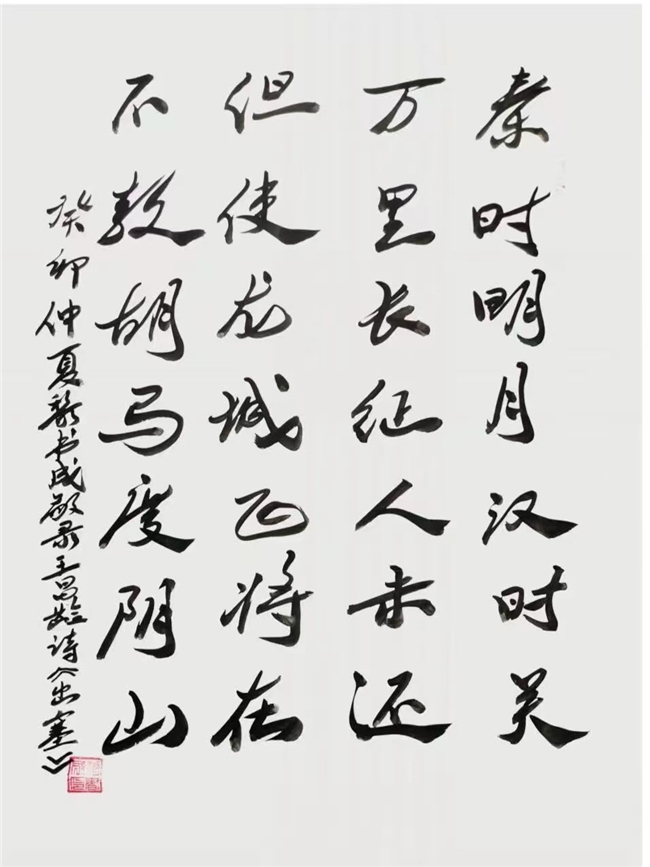 秦时明月汉时关
万里长征人未还
但使龙城飞将在
不教胡马度阴山
癸卯仲夏书成敬录王昌龄诗《出塞》